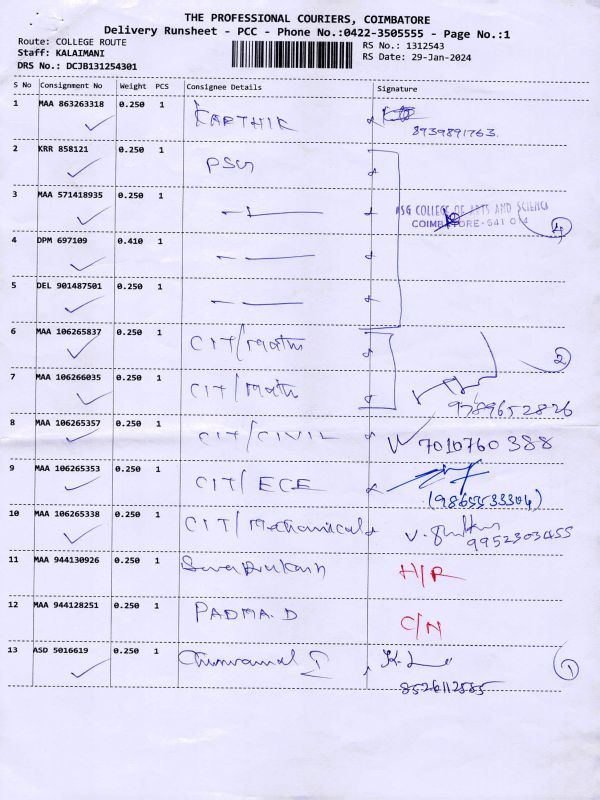 THE PROFESSIONAL COURIERS, COIMBATORE
Delivery Runsheet - PCC - Phone No.:0422-3505555 - Page No.:1
Route: COLLEGE ROUTE RS No.: 1312543
Staff: KALAIMANI RS Date: 29-Jan-2024
DRS No.: DCJB131254301
S No Consignment No Weight PCS Consignee Details Signature
1 MAA 863263318 0.250 1 KARTHIK
8939891763.
2 KRR 858121 0.250 1 PSG
3 MAA 571418935 0.250 1
PSG COLLEGE OF ARTS AND SCIENCE
COIMBATORE-641 014
4
4 DPM 697109 0.410 1
5 DEL 901487501 0.250 1
6 MAA 106265837 0.250 1 CIT/Math
2
7 MAA 106266035 0.250 1 CIT/Math
9789652826
8 MAA 106265357 0.250 1 CIT/CIVIL 7010760388
9 MAA 106265353 0.250 1 CIT/ECE
(9865533304)
10 MAA 106265338 0.250 1 CIT/Mechanical
9952303455
11 MAA 944130926 0.250 1 H/R
12 MAA 944128251 0.250 1 PADMA. D C/N
13 ASD 5016619 0.250 1
1
8526112585